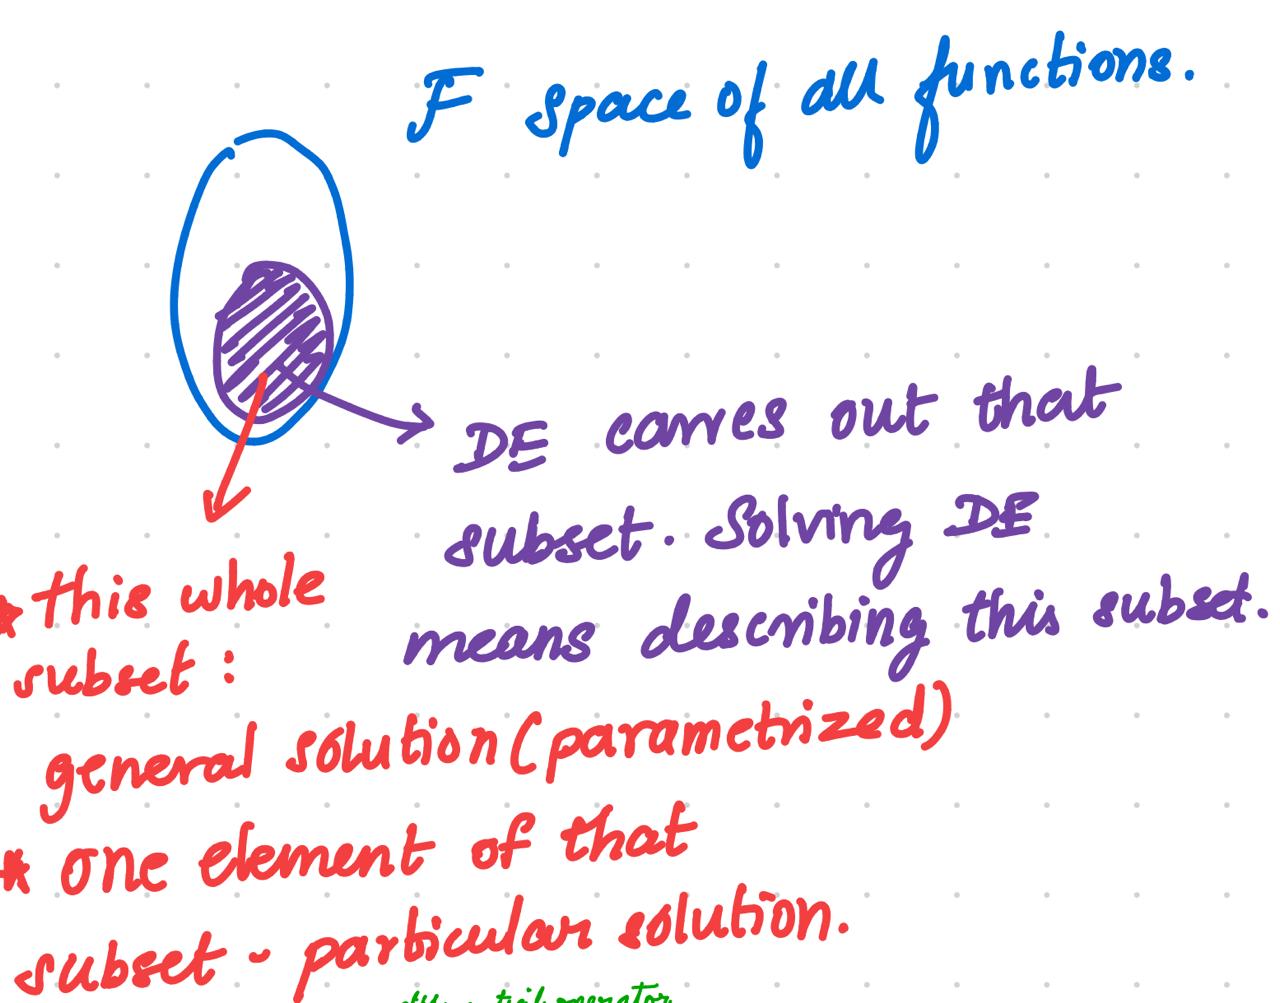 F space of all functions.
DE carves out that
subset. Solving DE
means describing this subset.
* this whole
subset :
general solution (parametrized)
* one element of that
subset - particular solution.
operator